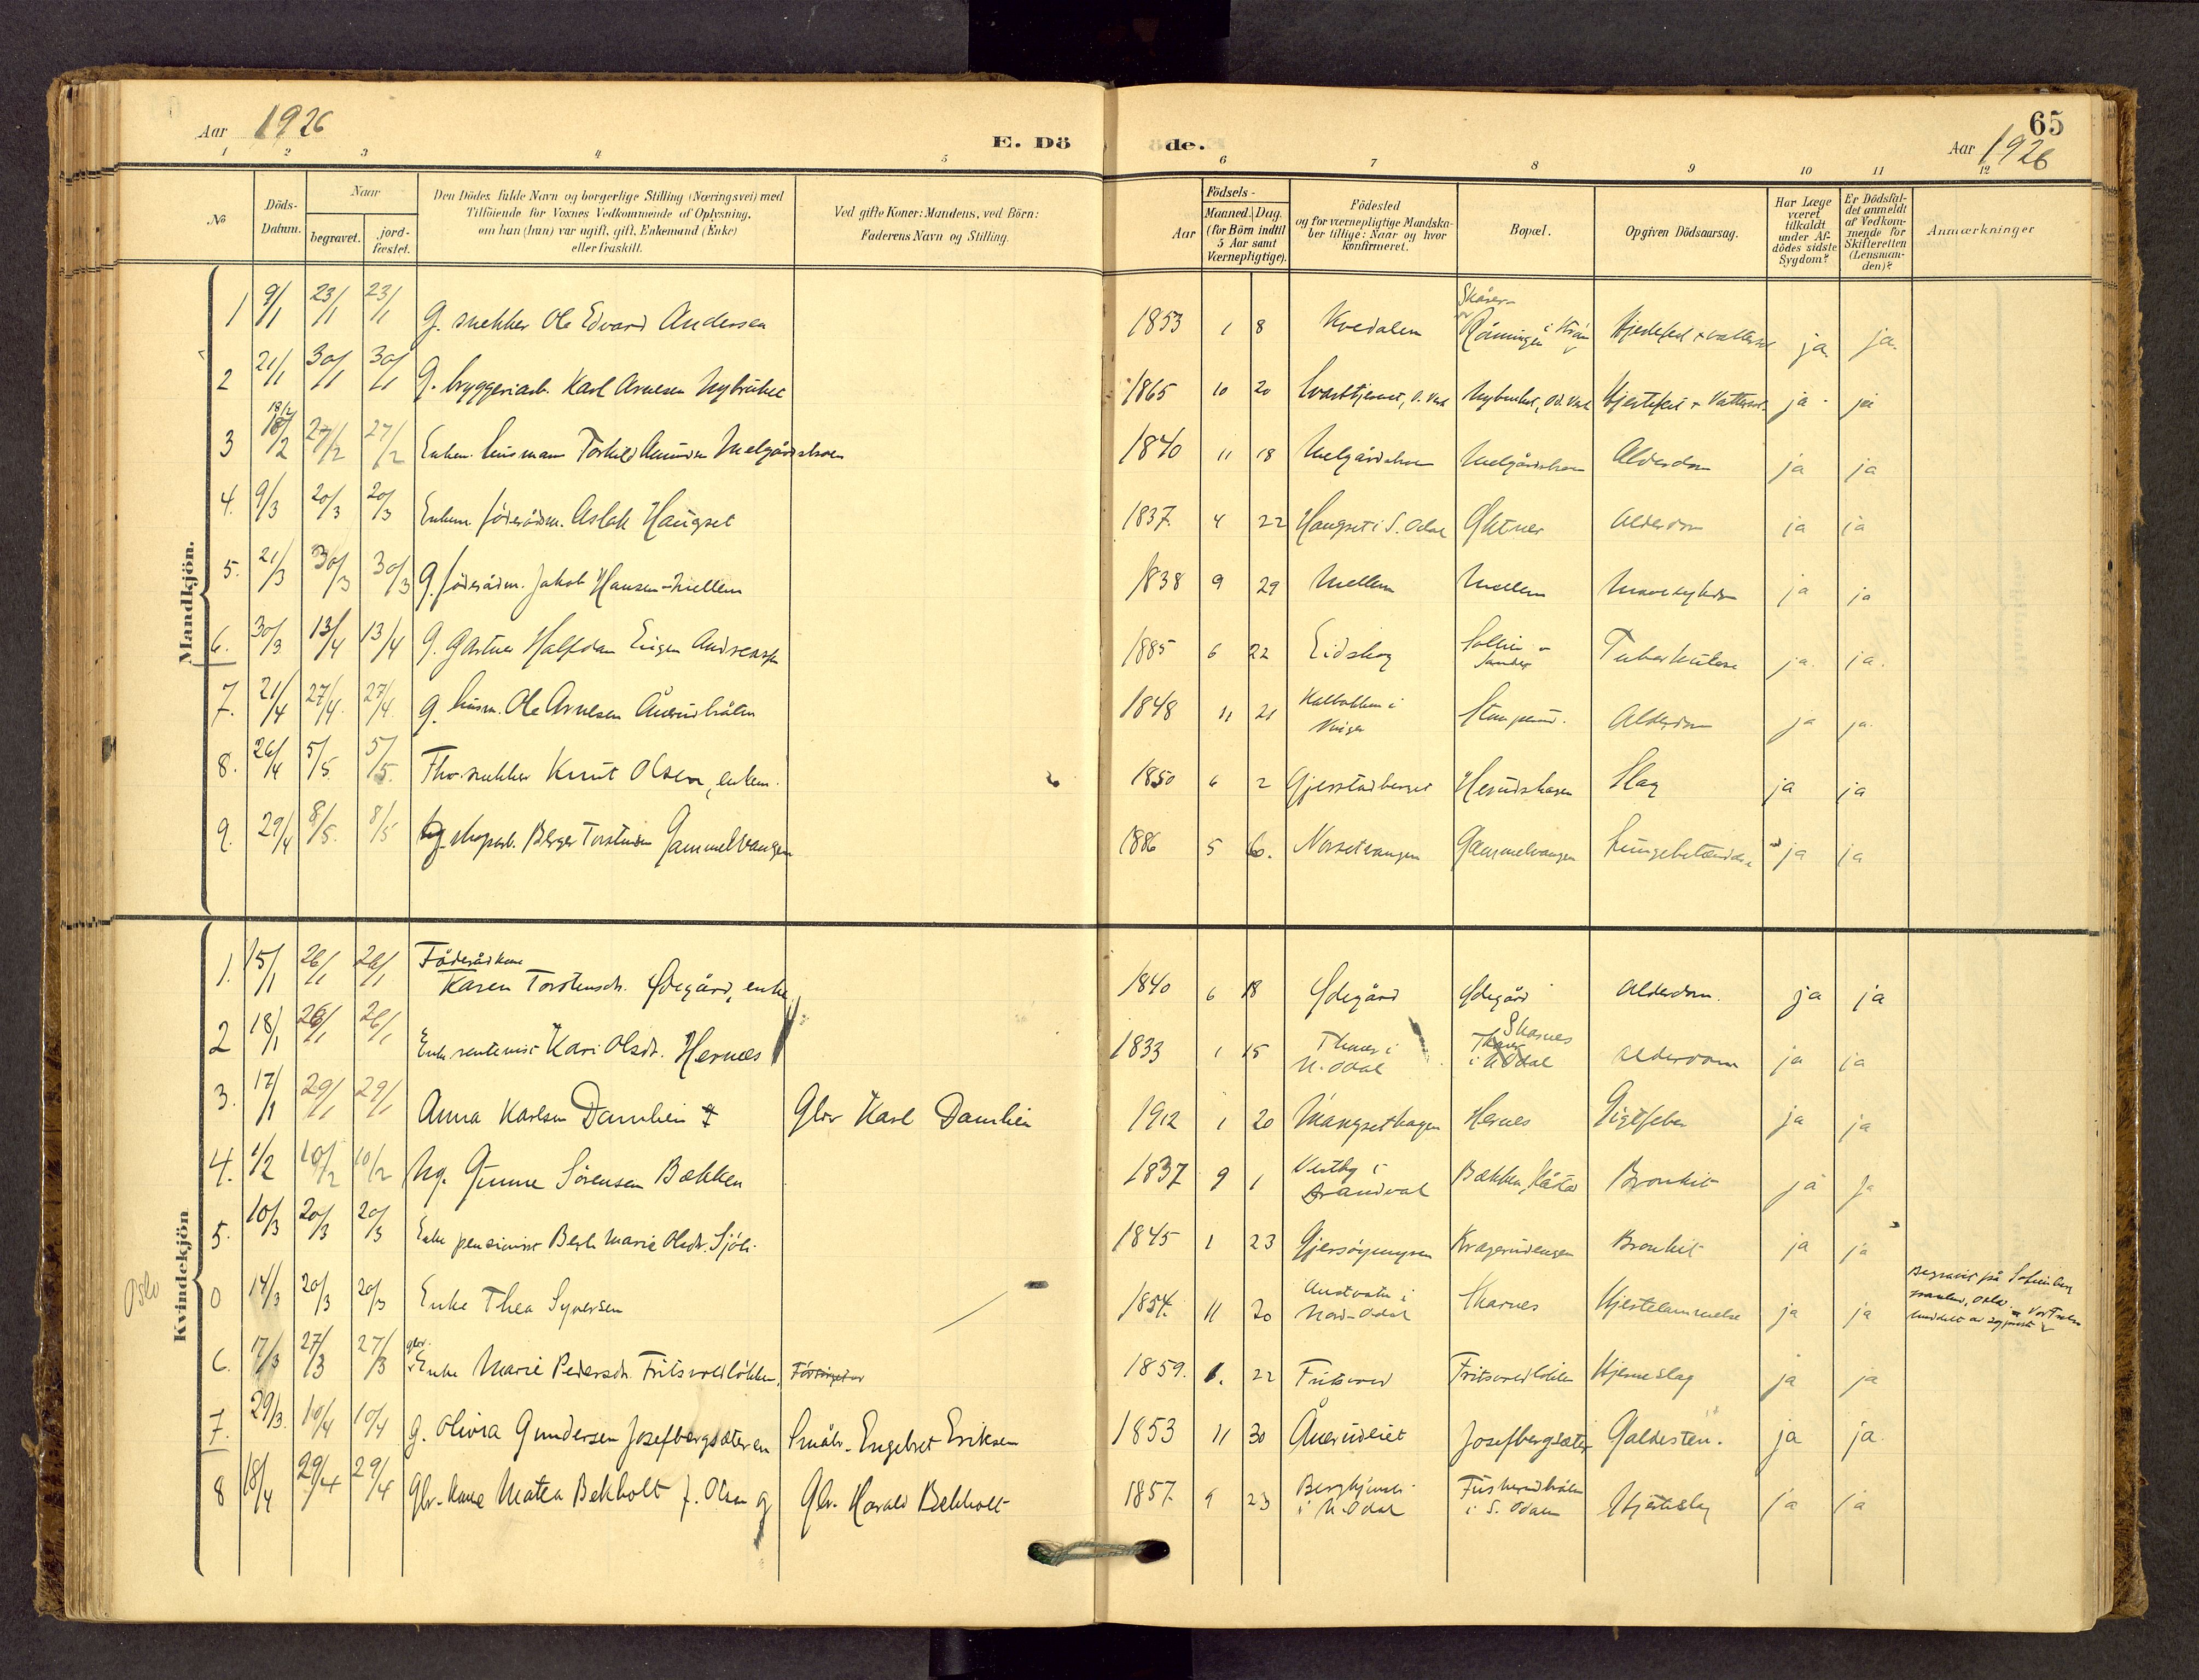 Aar 1926
E. Dö
de.
65
Aar 1926
1 2 3 4 5 6 7 8 9 10 11 12
No
Döds-
Datum.
Naar
begravet.
jord-
fæstet.
Den Dödes fulde Navn og borgerlige Stilling (Næringsvei) med
Tilföiende for Voxnes Vedkommende af Oplysning,
om han (hun) var ugift, gift, Enkemand (Enke)
eller fraskilt.
Ved gifte Koner: Mandens, ved Börn:
Faderens Navn og Stilling.
Aar
Födsels-
Maaned. Dag.
(for Börn indtil
5 Aar samt
Værnepligtige).
Födested
og for værnepligtige Mandska-
ber tillige: Naar og hvor
konfirmeret.
Bopæl.
Opgiven Dödsaarsag.
Har Læge
været
tilkaldt
under Af-
dödes sidste
Sygdom?
Er Dödsfal-
det anmeldt
af Vedkom-
mende for
Skifteretten
(Lensman-
den)?
Anmærkninger
Mandkjön.
1 9/1 23/1 23/1 G. snekker Ole Edvard Andersen 1853 1 8 Kvedalen Rönningen i ja. ja.
2 21/1 30/1 30/1 G. bryggeriarb. Karl Arnesen Nybruket 1865 10 20 Nybruket, Od. Verk Hjertefeil + Vattersot ja ja
3 18/2 27/2 27/2 Enkem. husmann Torkild Amundsen Melgårdshoen 1840 11 18 Melgårdshoen Melgårdshoen Alderdom ja ja
4. 9/3 20/3 20/3 Enkem. föderådsm. Aslak Haugset 1837. 4 22 Haugset i S. Odal Oktner Alderdom ja ja
5. 21/3 30/3 30/3 G. föderådm. Jakob Hansen Mellem 1838 9 29 Mellem Mellem Mavesykdom ja ja
6. 30/3 13/4 13/4 G. Gartner Halfdan Eugen Andreassen 1885 6 22 Eidskog Sander Tuberkulose ja. ja.
7. 21/4 27/4 27/4 g. husm. Ole Arnesen Åuerudbråten 1848 11 21 i Vinger Alderdom ja ja.
8. 26/4 5/5 5/5. Fhv. snekker Knut Olsen, enkem. 1850 6 2 Gjerstadberget Herudshagen Slag ja ja
9. 29/4 8/5. 8/5 Ug. skogarb. Birger Torstensen Gammelvangen 1886 5 6. Norsetvangen Gammelvangen Lungebetændelse ja ja
Kvindekjön
1. 15/1 26/1 26/1 Föderådkone
Karen Torstensdr. Ødegård, enke 1840 6 18 Ødegård Ødegård Alderdom. ja ja
2 18/1 26/1 26/1 Enke rentenist Kari Olsdr. Hernes 1833 1 15 Thaues i N. Odal Skarnes i Odal Alderdom ja ja
3. 17/1 29/1 29/1 Anna Karlsen Damlien Gbr Karl Damlien 1912 1 20 Mangsethagen Hernes Gigtfeber ja ja
4. 1/2 10/2 10/2 Ug. Gunne Sörensen Bækken 1837 9 1 Vestby i Brandval Bækken, Bronkit ja ja
5. 10/3 20/3 20/3 Enke pensionist Berte Marie Olsdr. Sjöli 1845 1 23 Gjersöymyren Kragerudengen Bronkit ja ja
Oslo 0 14/3 20/3 20/3 Enke Thea Syversen 1854. 11 20 Austvatn i Nord-Odal Skarnes Hjertelammelse ja ja Begravet på
6. 17/3 27/3 27/3 gbr.
Enke Marie Pedersdr. Fritsvoldlökken, 1859. 1. 22 Fritsvold Fritsvoldlökken Hjerneslag ja ja
7. 29/3. 10/4 10/4 G. Olivia Gundersen Josefbergsæteren Småbr. Engebret Eriksen 1853 11 30 Åuerudeiet Josefbergsæter Galdesten. ja ja.
8 18/4 29/4 29/4 Gbr. kone Matea Bekholt f. Olsen g Gbr. Harald Bekholt 1857. 9 23 i N. Odal i S. Odalen Hjerteslag ja ja